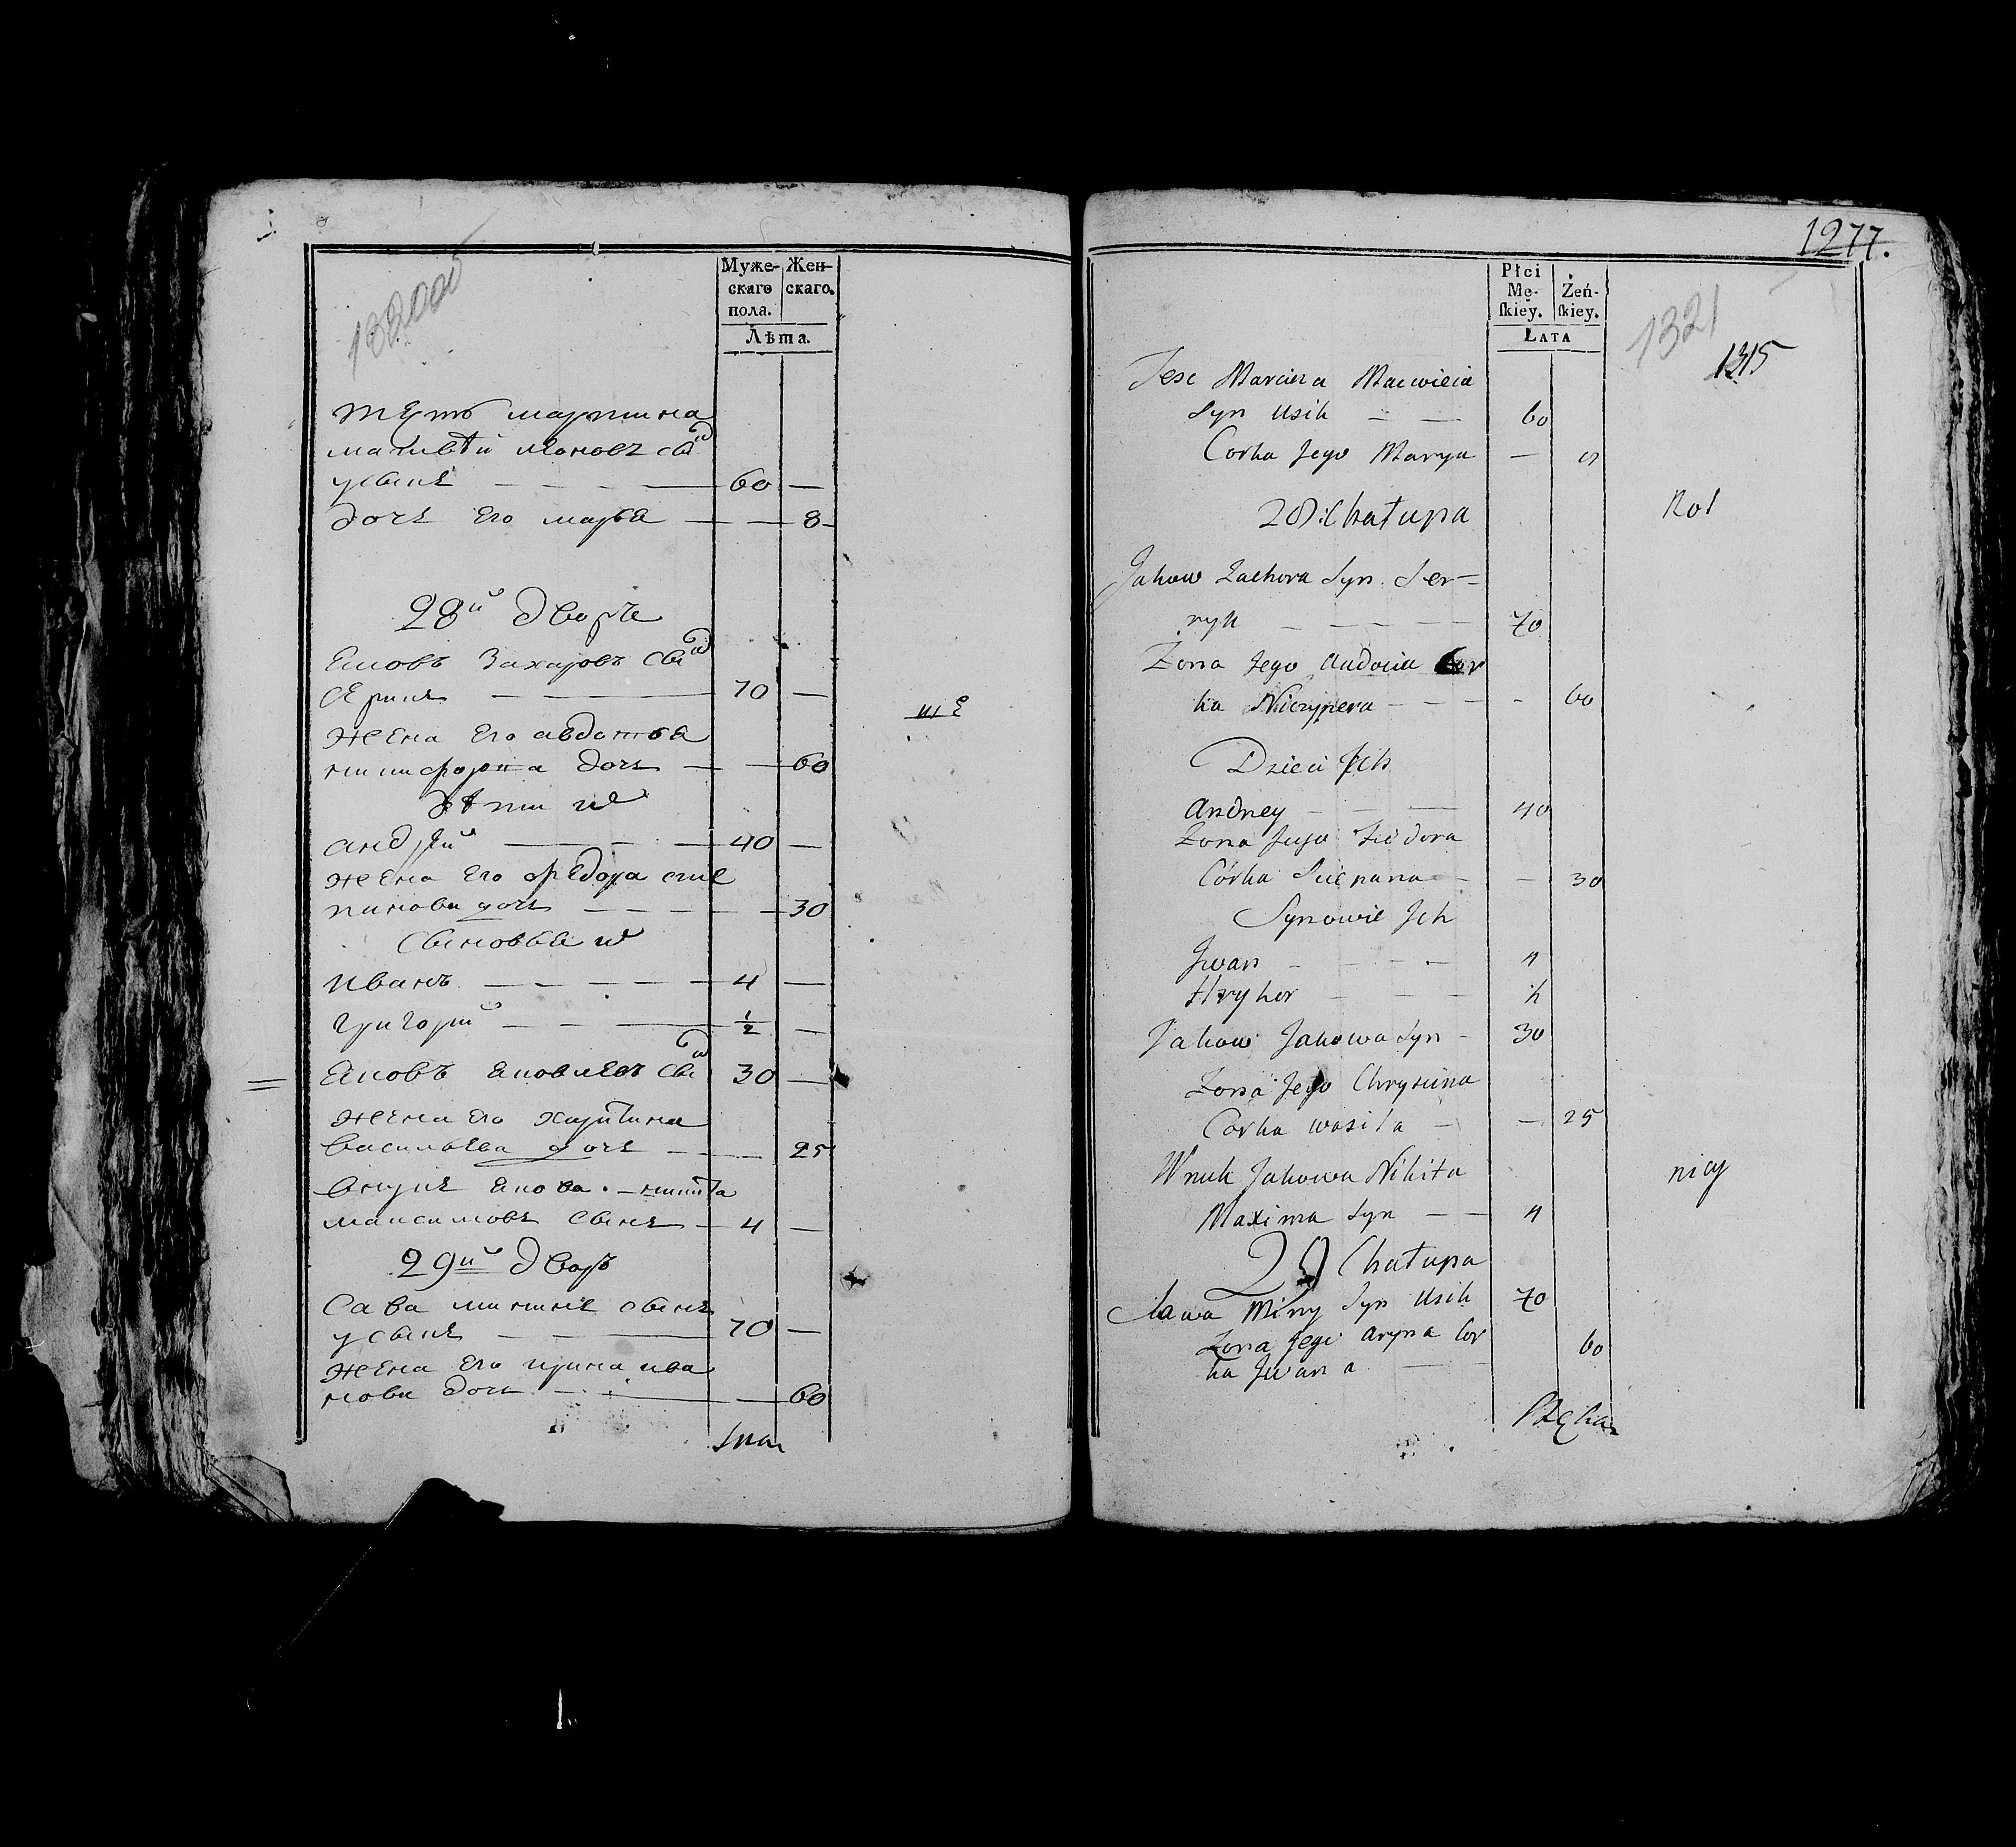 Муже-
скаго
пола.
Жен-
скаго.
Лѣта.
тесть мартина
матвѣй сы
усикъ — 60 —
дочь его марья — — 8
28й дворъ
Яковъ Захаровъ сынъ
серикъ — 70 —
жена его авдотья
никифорова дочь — — 60
дѣти их
андрей — 40 —
жена его федора сте
панова дочь — — 30
сыновья их
иванъ — 4 —
григорий — 1/2 —
Яковъ яковлевъ сынъ 30 —
жена его харитина
васильева дочь — — 25
внукъ якова — никита
максимовъ сынъ — 4 —
29й дворъ
Сава мининъ сынъ
усикъ — 70 —
жена его ирина ива
нова дочь — — 60
ше
1277.
Płci
Mę-
skiey.
Żeń-
skiey.
Łata
1321
1315
Tesc Marcina Macwieia
Syn Usik — 60
Corka Jego Marya — 8
28 Chałupa
Jakow Zachora Syn Ser-
ryk — 70
Żona Jego Audocia Cor
ka Niczypera — - 60
Dzieci Jch
Andrey — 40
Żona Jego Fiedora
Córka Sciepana — — 30
Synowie Jch
Jwan — 4
Hryhor — ½
Jakow Jakowa Syn - 30
Żona Jego Chrycina
Corka Wasila — — 25
Wnuk Jakowa Nikita
Maxima Syn — 4
29 Chałupa
Sawa Miny Syn Usik 70
Żona Jego Aryna Cor
ka Jwana — 60